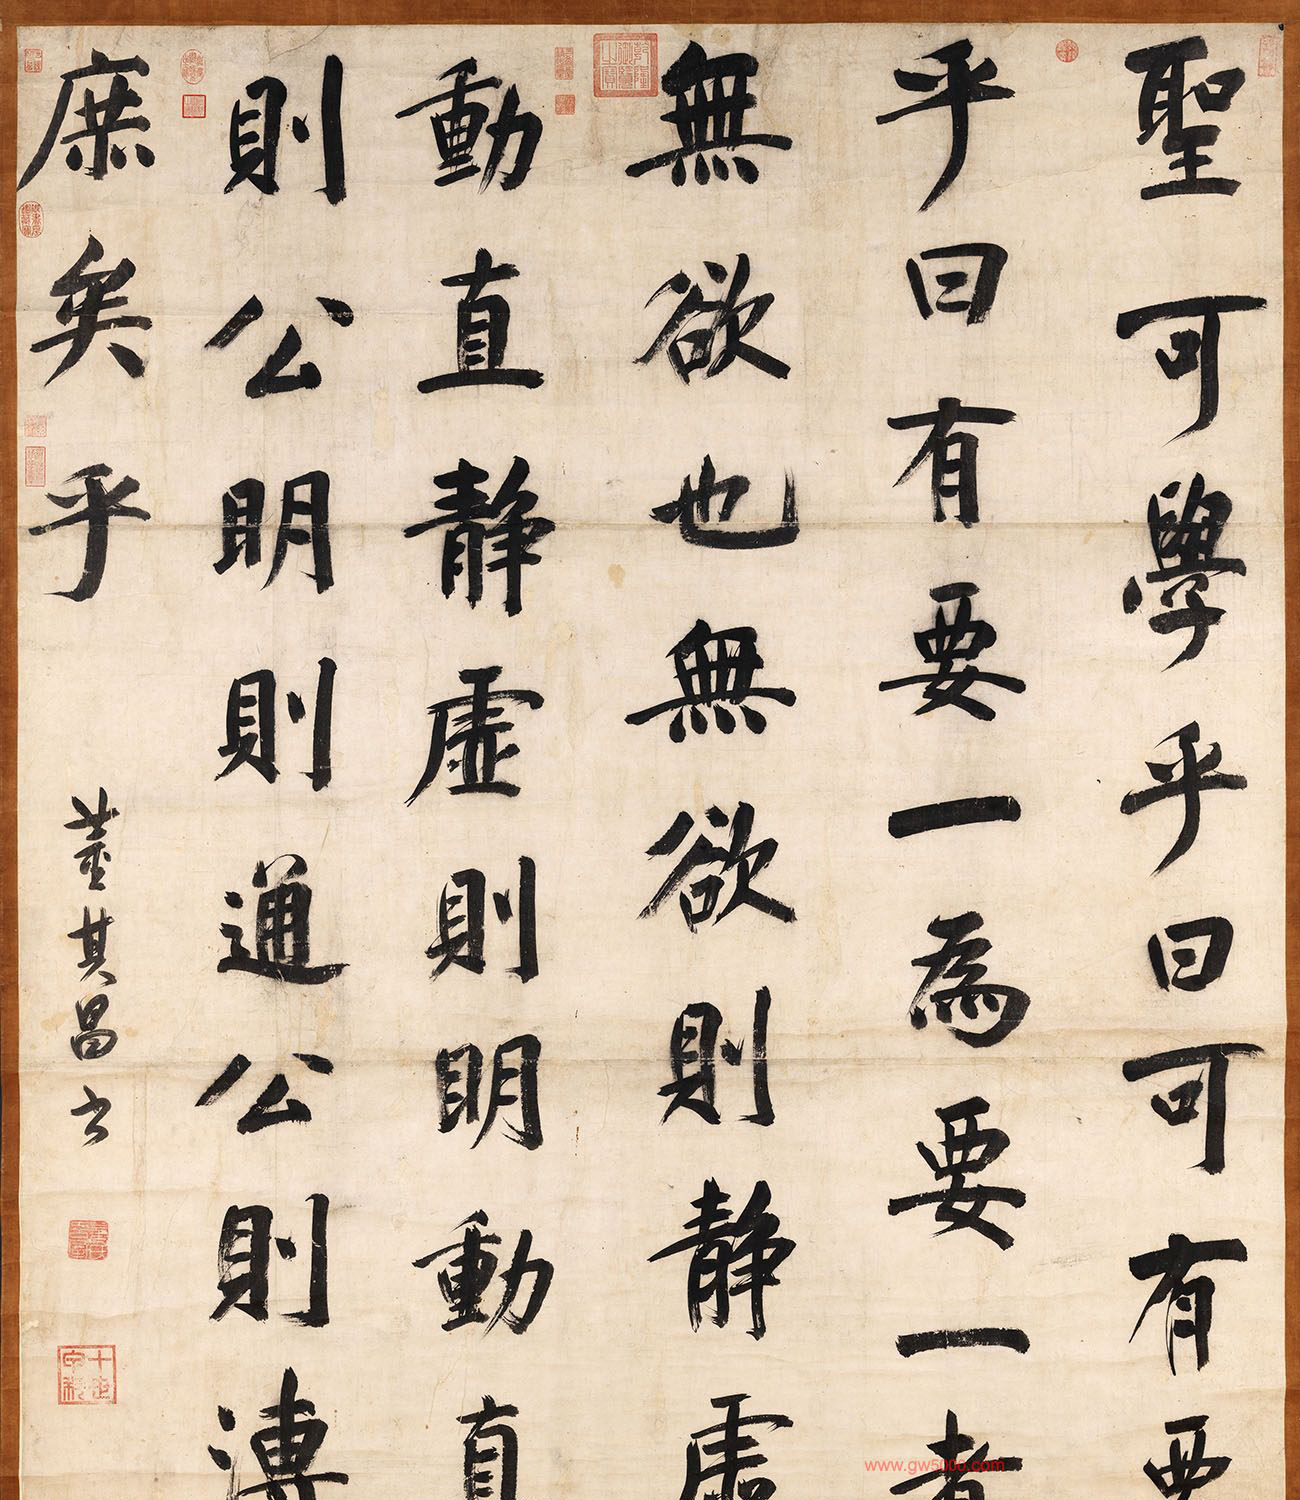 聖可學乎曰可有要
乎曰有要一為要一者
無欲也無欲則靜虛
動直靜虛則明動直
則公明則通公則溥
庶矣乎
董其昌書
www.gw5000.com